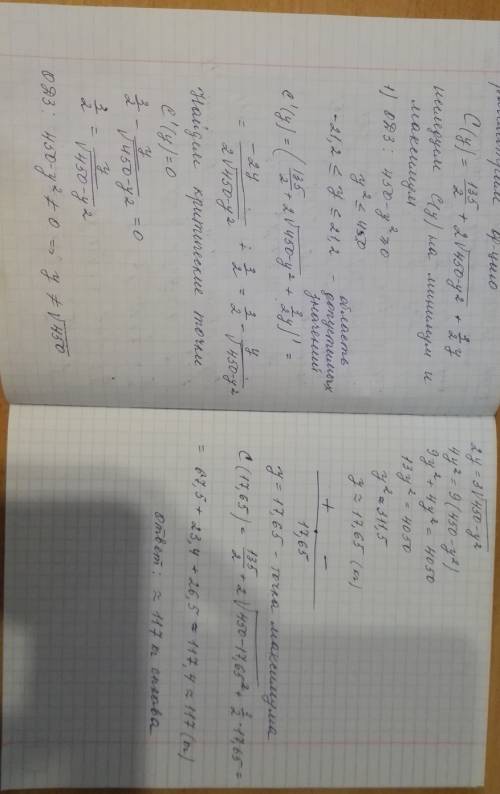 C(y) = 135/2 + 2√450-y² + 3/2 y
C(y) на минимум и
максимум
1) ОДЗ: 450-y² ≥ 0
y² ≤ 450
-21,2 ≤ y ≤ 21,2 - область допустимых значений
C'(y) = (135/2 + 2√450-y² + 3/2 y)' =
= -2y/2√450-y² + 3/2 = 3/2 - y/√450-y²
Найдём критические точки
C'(y) = 0
3/2 - y/√450-y² = 0
3/2 = y/√450-y²
ОДЗ: 450-y² ≠ 0 => y ≠ √450
2y = 3√450-y²
4y² = 9(450-y²)
9y² + 4y² = 4050
13y² = 4050
y² = 311,5
y ≈ 17,65 (м)
+ 17,65 -
y = 17,65 - точка максимума
C(17,65) = 135/2 + 2√450-17,65² + 3/2·17,65 =
= 67,5 + 23,4 + 26,5 = 117,4 ≈ 117 (м)
Ответ: ≈ 117 м